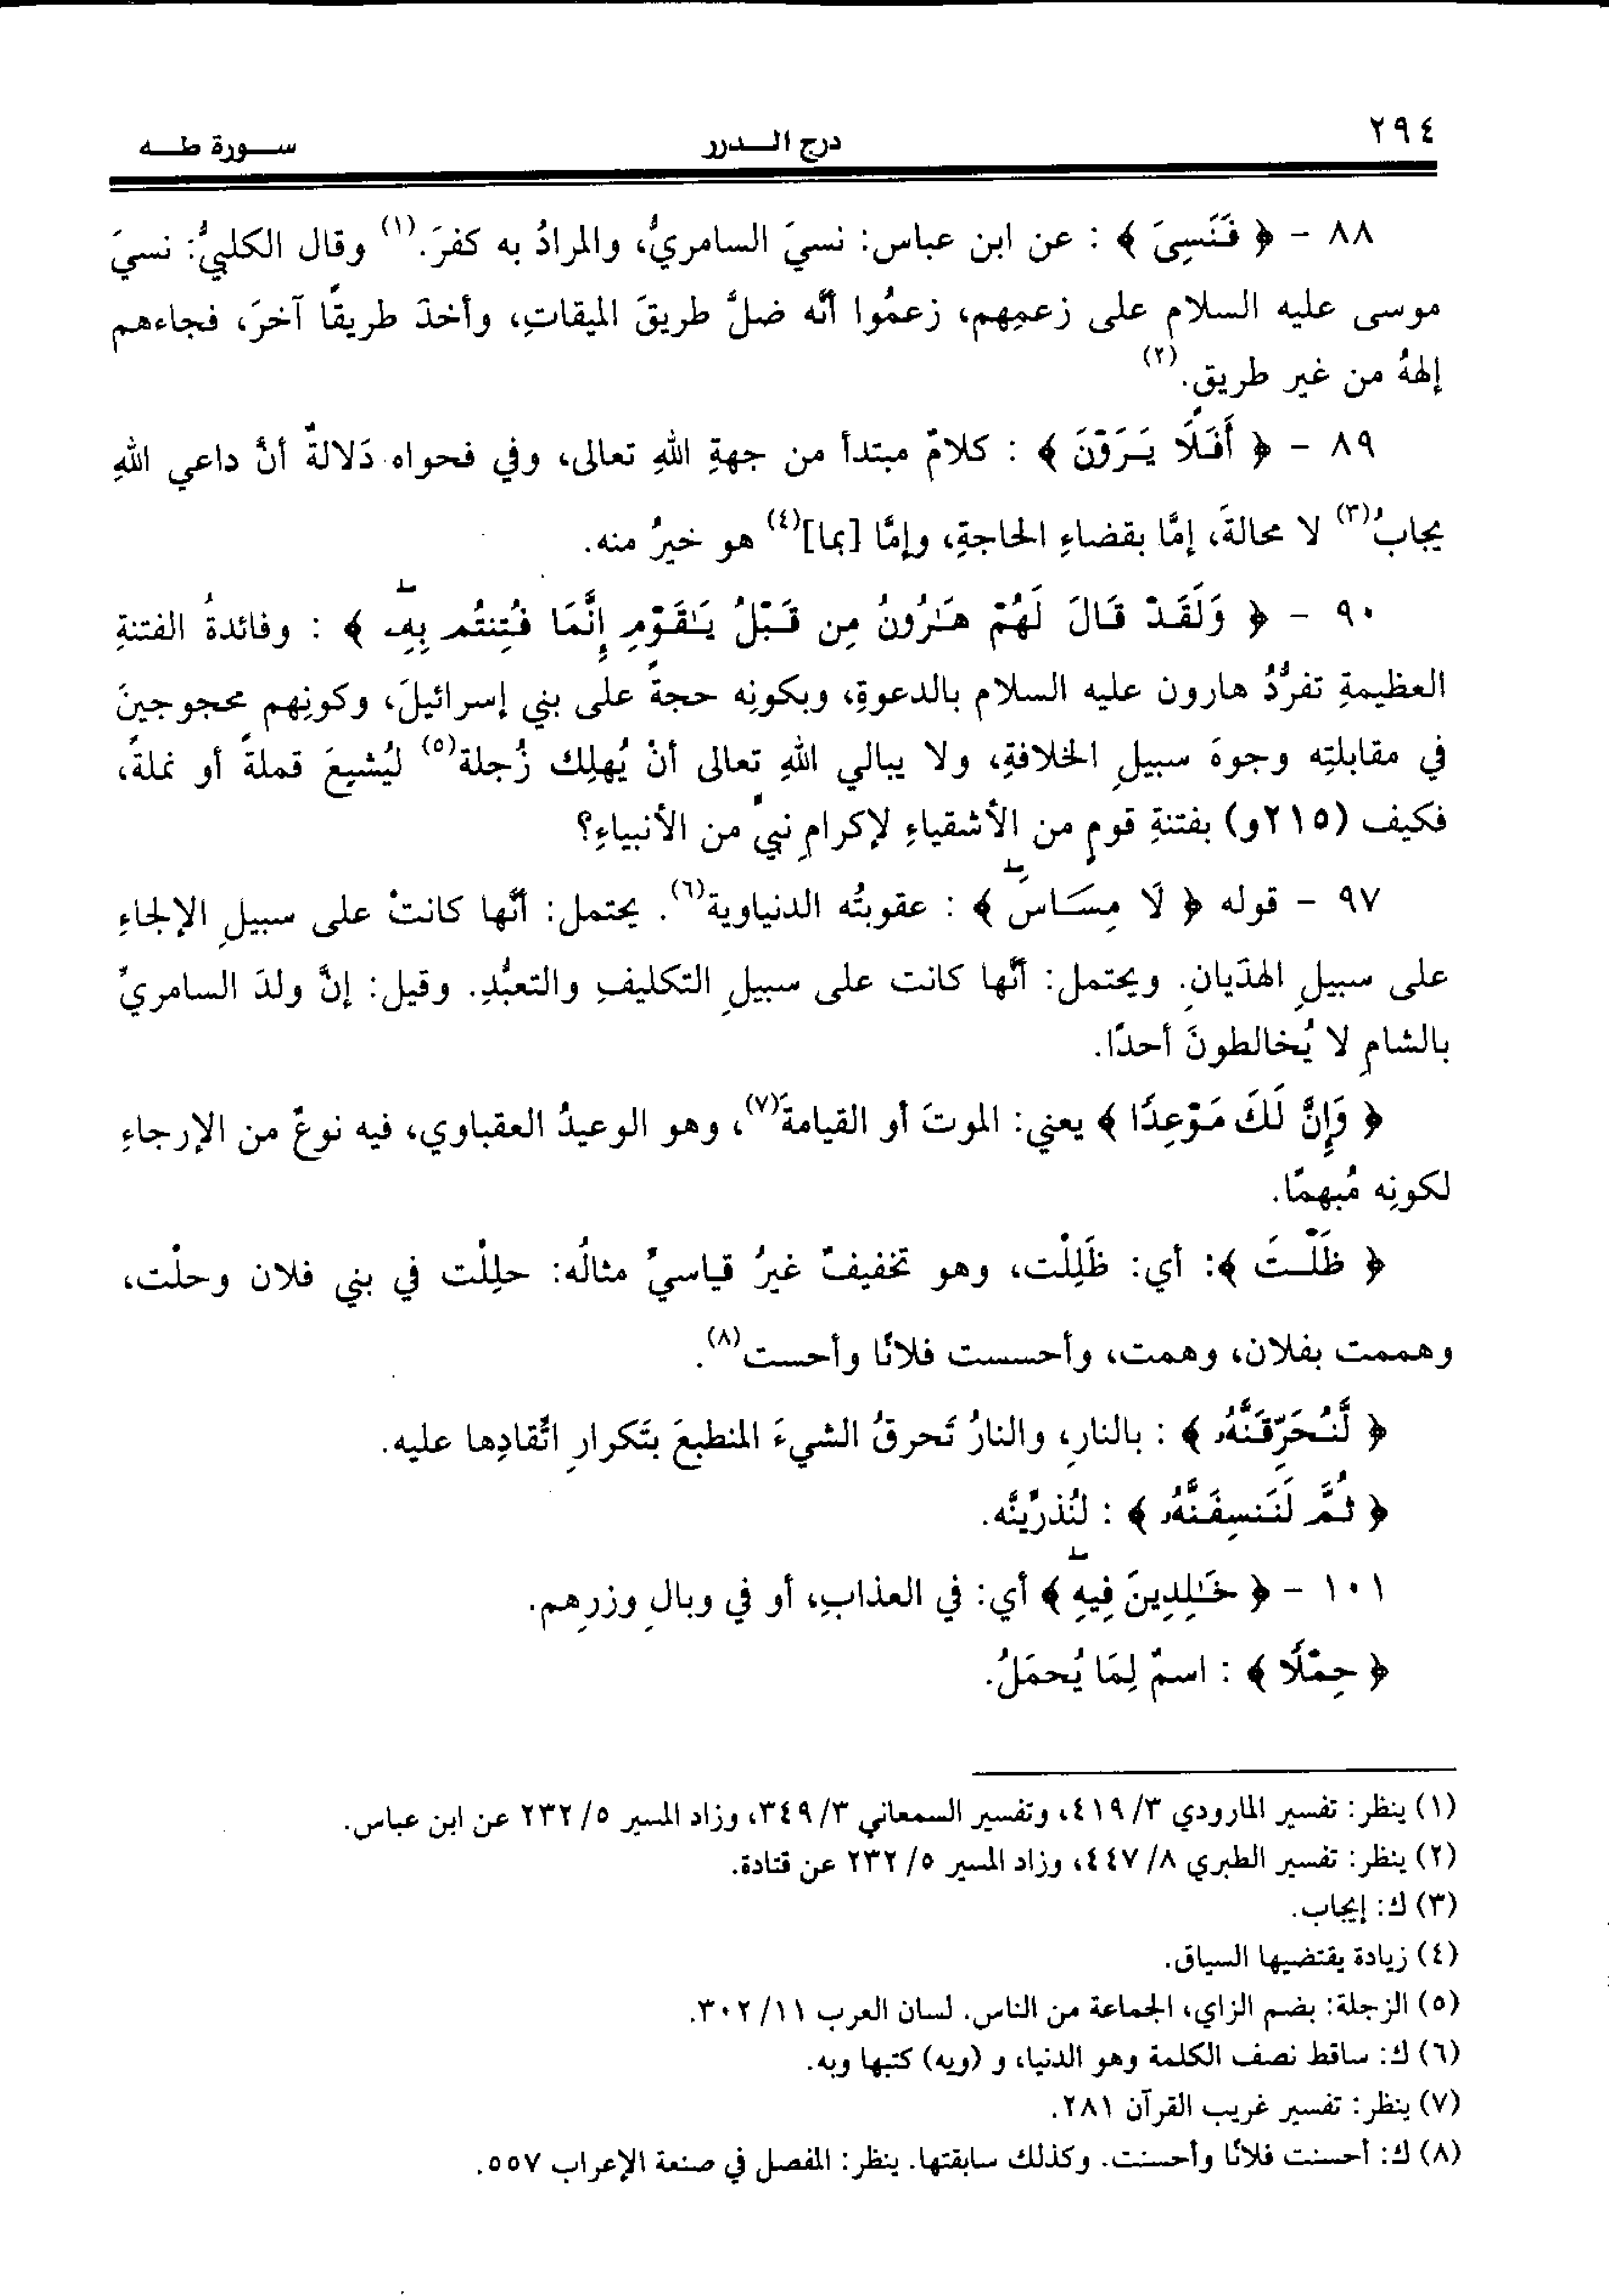 ٢٩٤ درج الـــدرر ســـورة طـــه
٨٨ - ﴿ فَنَسِىَ ﴾ : عن ابن عباس: نسيَ السامريُّ، والمرادُ به كفرَ.(١) وقال الكلبيُّ: نسيَ
موسى عليه السلام على زعمِهم، زعمُوا أنَّه ضلَّ طريقَ الميقاتِ، وأخذَ طريقًا آخرَ، فجاءهم
إلههُ من غير طريقٍ.(٢)
٨٩ - ﴿ أَفَلَا يَرَوْنَ ﴾ : كلامٌ مبتدأ من جهةِ اللهِ تعالى، وفي فحواه دَلالةٌ أنَّ داعي اللهِ
يجابُ(٣) لا محالةَ، إمَّا بقضاءِ الحاجةِ، وإمَّا [بما](٤) هو خيرٌ منه.
٩٠ - ﴿ وَلَقَدْ قَالَ لَهُمْ هَـٰرُونُ مِن قَبْلُ يَـٰقَوْمِ إِنَّمَا فُتِنتُم بِهِۦۖ ﴾ : وفائدةُ الفتنةِ
العظيمةِ تفرُّدُ هارون عليه السلام بالدعوةِ، وبكونِه حجةً على بني إسرائيلَ، وكونِهم محجوجينَ
في مقابلتِه وجوهَ سبيلِ الخلافةِ، ولا يبالي اللهِ تعالى أنْ يُهلِك زُجلة(٥) ليُشبِعَ قملةً أو نملةً،
فكيف (٢١٥و) بفتنةِ قومٍ من الأشقياءِ لإكرامِ نبيٍّ من الأنبياءِ؟
٩٧ - قوله ﴿ لَا مِسَاسَۖ ﴾ : عقوبتُه الدنياوية(٦). يحتمل: أنَّها كانتْ على سبيلِ الإلجاءِ
على سبيلِ الهذَيانِ. ويحتمل: أنَّها كانت على سبيلِ التكليفِ والتعبُّدِ. وقيل: إنَّ ولدَ السامريِّ
بالشامِ لا يُخالطونَ أحدًا.
﴿ وَإِنَّ لَكَ مَوْعِدًا ﴾ يعني: الموتَ أو القيامةَ(٧)، وهو الوعيدُ العقباوي، فيه نوعٌ من الإرجاءِ
لكونِه مُبهمًا.
﴿ ظَلْتَ ﴾: أي: ظَلِلْت، وهو تخفيفٌ غيرُ قياسيٍّ مثالُه: حلِلْت في بني فلان وحلْت،
وهممت بفلان، وهمت، وأحسست فلانًا وأحست(٨).
﴿ لَّنُحَرِّقَنَّهُۥ ﴾ : بالنارِ، والنارُ تَحرقُ الشيءَ المنطبعَ بتَكرارِ اتِّقادِها عليه.
﴿ ثُمَّ لَنَنسِفَنَّهُۥ ﴾ : لنُذرِّينَّه.
١٠١ - ﴿ خَـٰلِدِينَ فِيهِۖ ﴾ أي: في العذابِ، أو في وبالِ وزرِهم.
﴿ حِمْلًا ﴾ : اسمٌ لِمَا يُحمَلُ.
(١) ينظر: تفسير الماوردي ٣/ ٤١٩، وتفسير السمعاني ٣/ ٣٤٩، وزاد المسير ٥/ ٢٣٢ عن ابن عباس.
(٢) ينظر: تفسير الطبري ٨/ ٤٤٧، وزاد المسير ٥/ ٢٣٢ عن قتادة.
(٣) ك: إيجاب.
(٤) زيادة يقتضيها السياق.
(٥) الزجلة: بضم الزاي، الجماعة من الناس. لسان العرب ١١/ ٣٠٢.
(٦) ك: ساقط نصف الكلمة وهو الدنيا، و (ويه) كتبها وبه.
(٧) ينظر: تفسير غريب القرآن ٢٨١.
(٨) ك: أحسنت فلانًا وأحسنت. وكذلك سابقتها. ينظر: المفصل في صنعة الإعراب ٥٥٧.